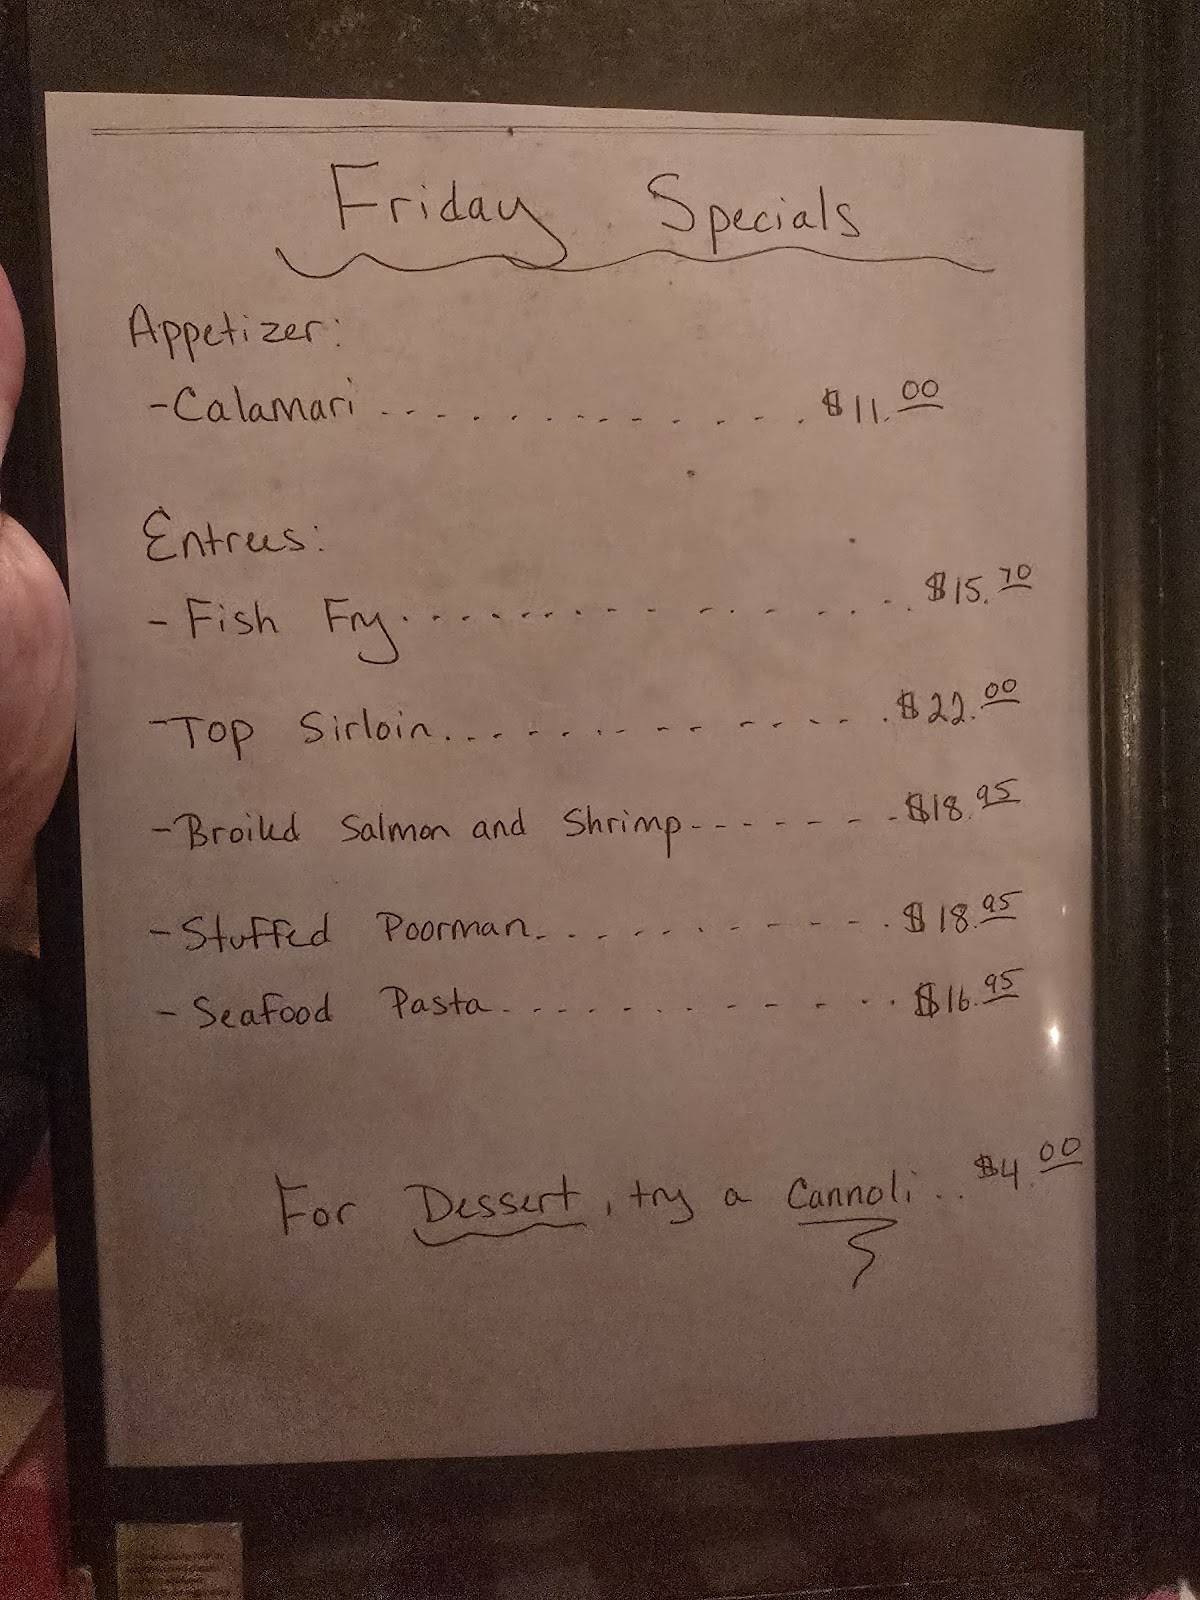 Friday Specials
Appetizer:
-Calamari .............. $11.00
Entrees:
-Fish Fry................ $15.70
-Top Sirloin............. $22.00
-Broiled Salmon and Shrimp------- $18.95
-Stuffed Poorman............. $18.95
-Seafood Pasta.............. $16.95
For Dessert, try a Cannoli.. $4.00